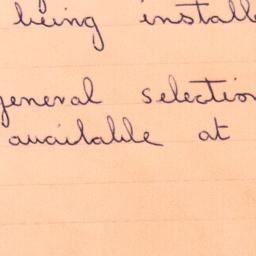 being install
general selection
available at